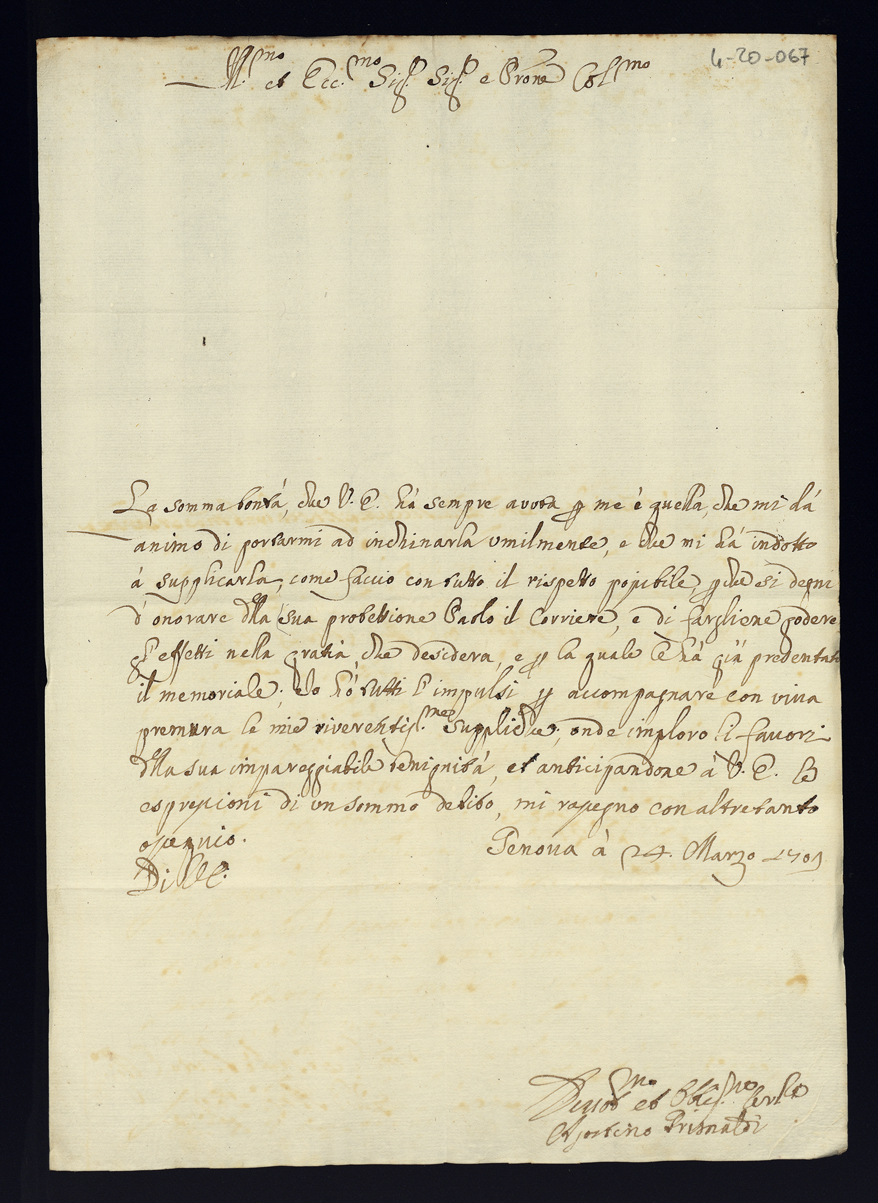 4-20-067
Ill.mo et Ecc.mo Sig.r Sig.r e Prone Col.mo
La somma bontà, che V. E. hà sempre avuta p me è quella, che mi dà
animo di portarmi ad inchinarla umilmente, e che mi hà indotto
à supplicarla, come faccio con tutto il rispetto possibile pche si degni
d'onorare dlla sua protettione Paolo il Corriere, e di fargliene godere
gl'effetti nella gratia, che desidera, e p la quale le hà già presentato
il memoriale; Io hò tutti l'impulsi p accompagnare con viva
premura le mie riverentis.me suppliche; onde imploro li favori
dlla sua impareggiabile benignità, et anticipandone à V. E. le
espressioni di un sommo debito, mi rassegno con altretanto
ossequio.
Di V. E.
Genova à 24. Marzo 1701
Devot.mo et Obl.mo Ser.re
Agostino